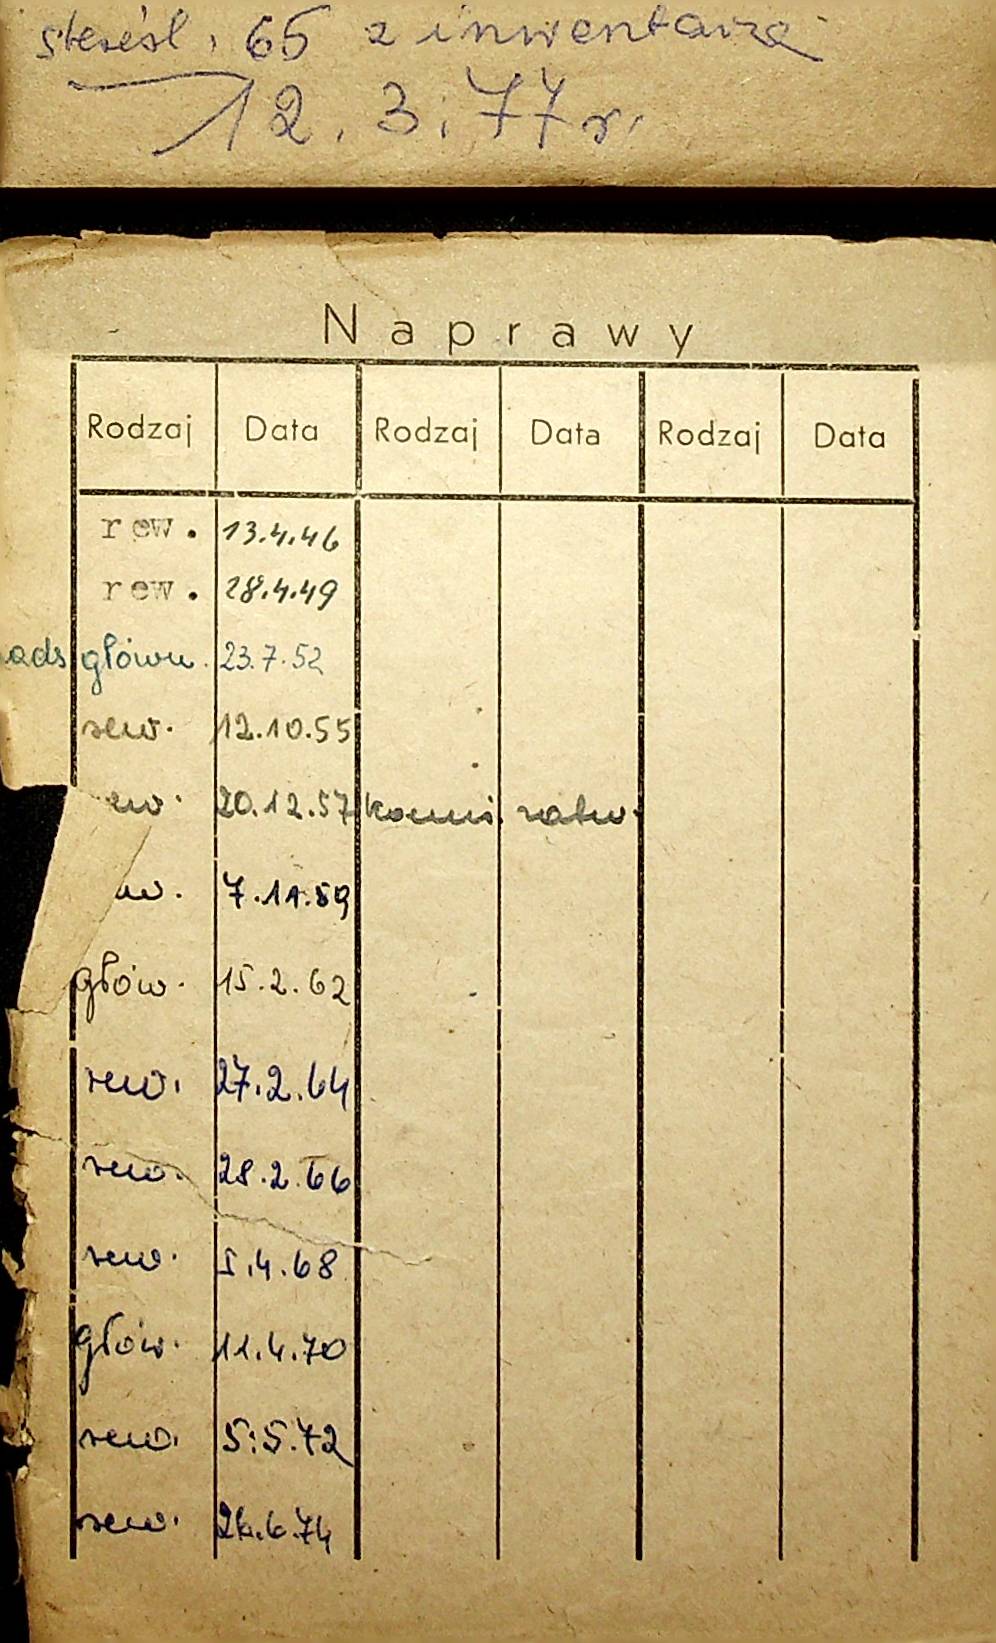 skreśl. 65 z inwentarza
12.3.77r.
Naprawy
Rodzaj Data Rodzaj Data Rodzaj Data
rew. 13.4.46
rew. 28.4.49
nads główn. 23.7.52
rew. 12.10.55
ew. 20.12.57 komis. ratw.
w. 7.11.59
głów. 15.2.62
rew. 27.2.64
rew. 28.2.66
rew. 5.4.68
głów. 11.4.70
rew. 5.5.72
rew. 26.6.74